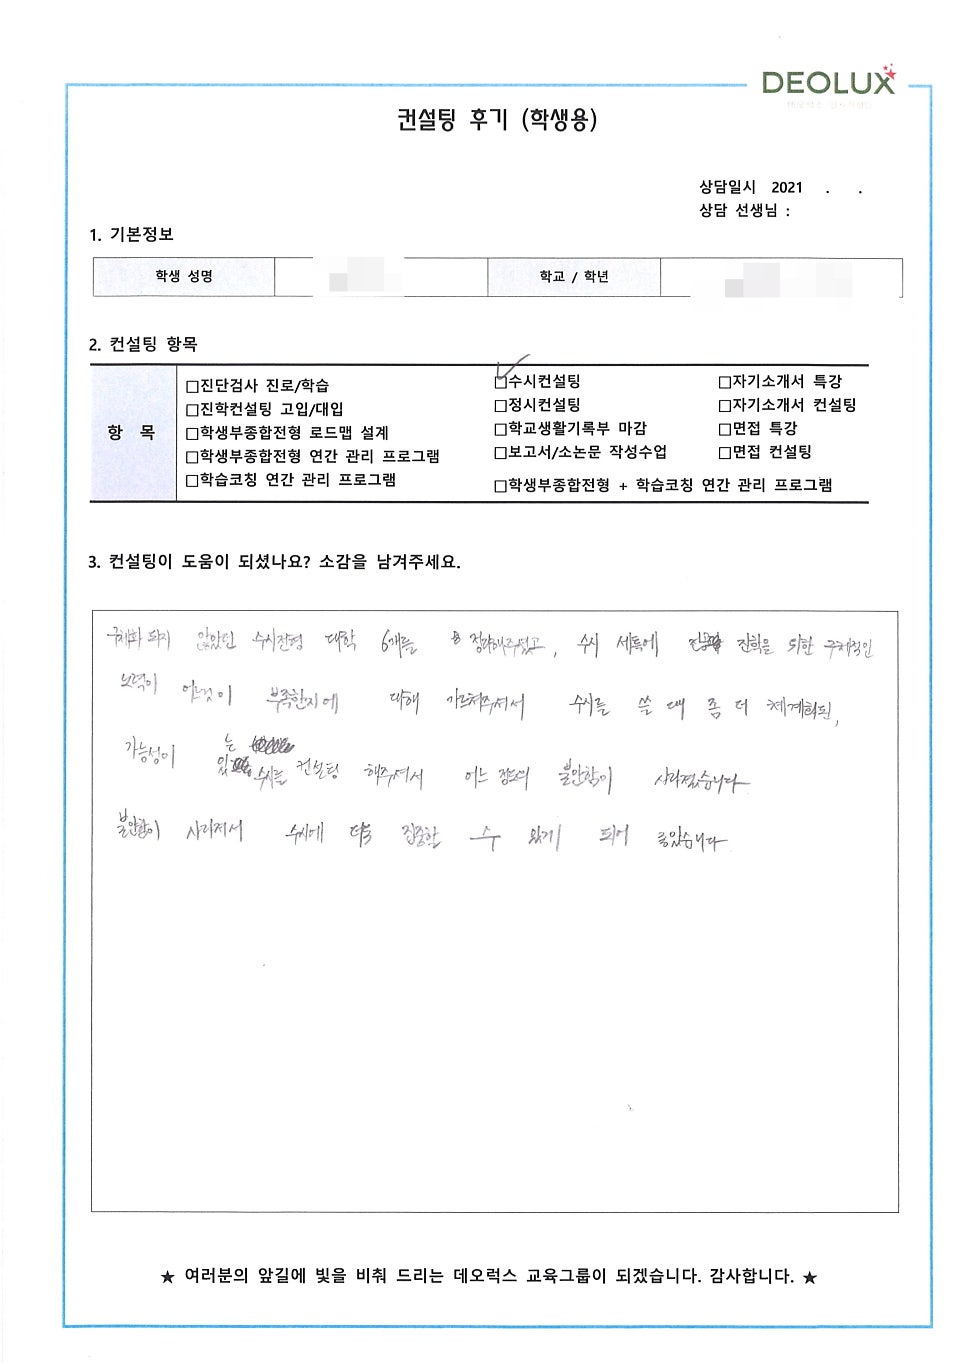 DEOLUX
컨설팅 후기 (학생용)
상담일시 2021 . .
상담 선생님 :
1. 기본정보
학생 성명 학교 / 학년
2. 컨설팅 항목
항 목
□진단검사 진로/학습
□진학컨설팅 고입/대입
□학생부종합전형 로드맵 설계
□학생부종합전형 연간 관리 프로그램
□학습코칭 연간 관리 프로그램
□수시컨설팅
□정시컨설팅
□학교생활기록부 마감
□보고서/소논문 작성수업
□학생부종합전형 + 학습코칭 연간 관리 프로그램
□자기소개서 특강
□자기소개서 컨설팅
□면접 특강
□면접 컨설팅
3. 컨설팅이 도움이 되셨나요? 소감을 남겨주세요.
구체화 되지 않았던 수시전형 대학 6개를 정리해주셨고, 수시 세특에 진학을 위한 구체적인
노력이 어떻게 부족한지에 대해 가르쳐주셔서 수시를 쓸 때 좀 더 체계화된,
가능성이 있는 수시를 컨설팅 해주셔서 어느 정도의 불안함이 사라졌습니다
불안함이 사라져서 수시에 더욱 집중할 수 있게 되어 좋았습니다
★ 여러분의 앞길에 빛을 비춰 드리는 데오럭스 교육그룹이 되겠습니다. 감사합니다. ★